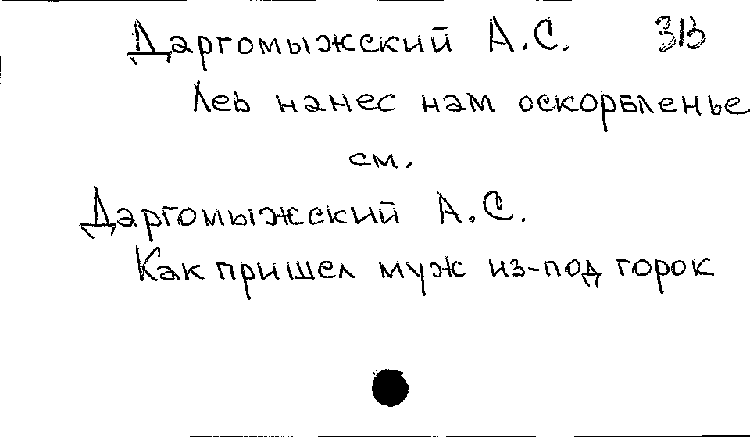 Даргомыжский А.С. ЗВ
Лев нанес нам оскорбленье
см.
Даргомыжский А.С.
Как пришел муж из-под горок